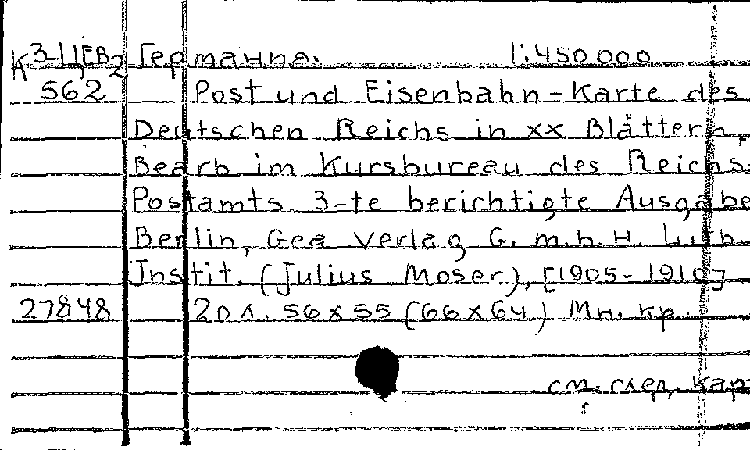 К 3-ЦЕВ2 Германиа. 1:450.000
562 Post und Eisenbahn-Karte des
Deutschen Reichs in xx Blättern,
Bearb im Kursbureau des Reichs-
Postamts 3-te berichtigte Ausgabe
Berlin, Gea Verlag G.m.b.H. Lith.
Instit. (Julius Moser), [1905-1910]
27848 20 л. 56 x 55 (66 x 64) Мн. кр.
см. след. кар